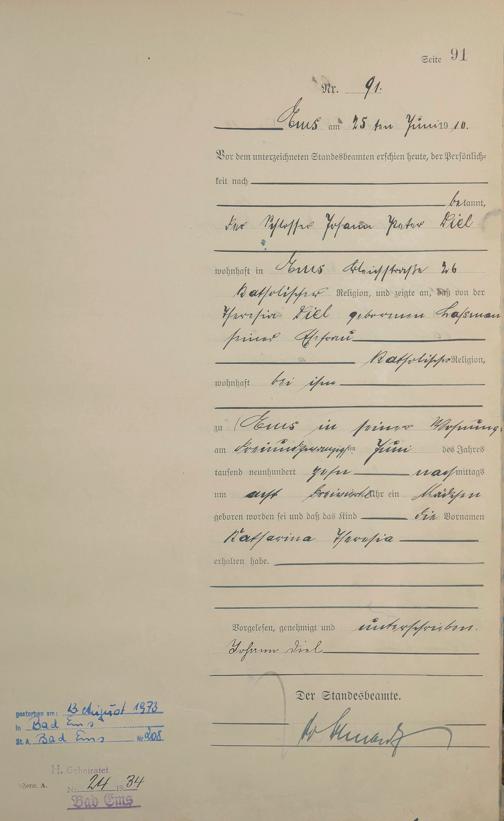 Seite 91
Nr. 91.
Ems am 25 ten Juni 1910.
Vor dem unterzeichneten Standesbeamten erschien heute, der Persönlich-
keit nach
bekannt,
der Schlosser Johann Peter Diel
wohnhaft in Ems Bleichstraße 26
katholischer Religion, und zeigte an, daß von der
Theresia Diel geborenen
seiner Ehefrau
katholischer Religion,
wohnhaft bei ihm
zu Ems in seiner Wohnung
am dreiundzwanzigsten Juni des Jahres
tausend neunhundert zehn nachmittags
um acht dreiviertel Uhr ein Mädchen
geboren worden sei und daß das Kind die Vornamen
Katharina Theresia
erhalten habe.
Vorgelesen, genehmigt und unterschrieben.
Johann Diel
Der Standesbeamte.
gestorben am: 13 August 1973
in Bad Ems
St. A. Bad Ems Nr 208
H. Geheiratet
Nr. 24 1934
Bad Ems
Form. A.